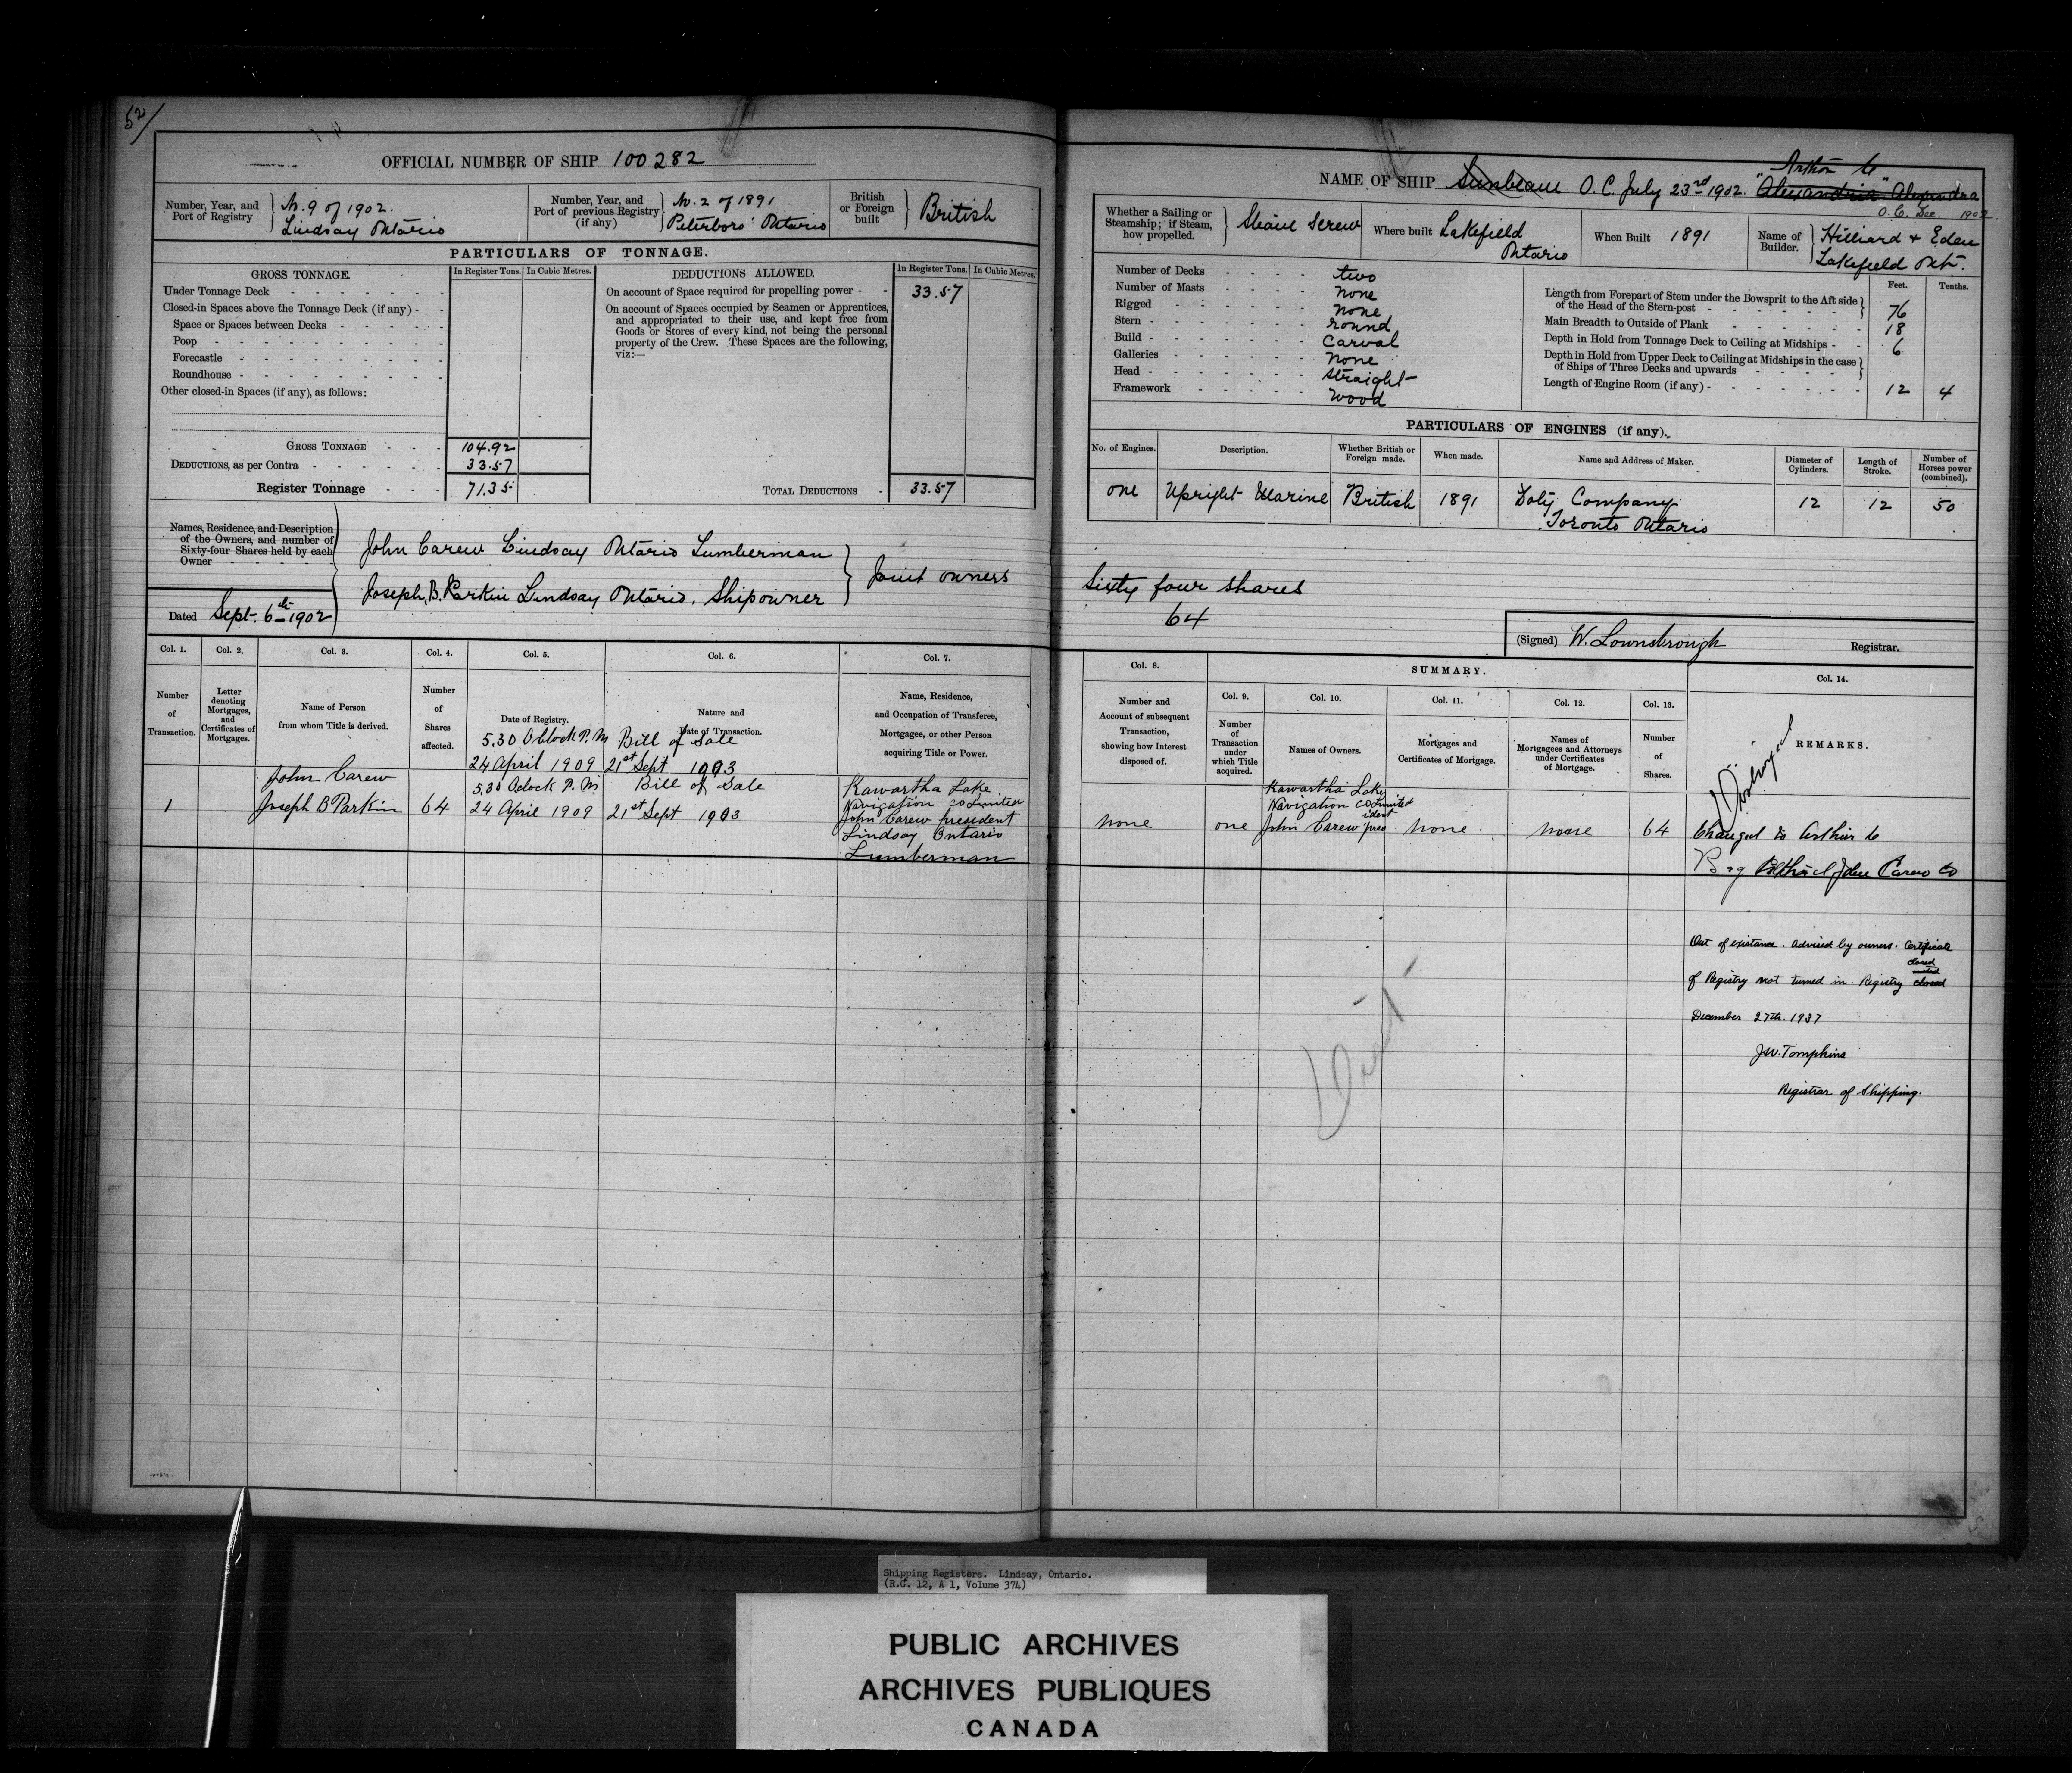 52/
OFFICIAL NUMBER OF SHIP 100282
Number, Year, and Port of Registry } No. 9 of 1902. Lindsay Ontario
Number, Year, and Port of previous Registry (if any) } No. 2 of 1891 Peterboro' Ontario
British or Foreign built } British
PARTICULARS OF TONNAGE.
GROSS TONNAGE. In Register Tons. In Cubic Metres. DEDUCTIONS ALLOWED. In Register Tons. In Cubic Metres.
Under Tonnage Deck
Closed-in Spaces above the Tonnage Deck (if any)
Space or Spaces between Decks
Poop
Forecastle
Roundhouse
Other closed-in Spaces (if any), as follows:
On account of Space required for propelling power - 33.57
On account of Spaces occupied by Seamen or Apprentices,
and appropriated to their use, and kept free from
Goods or Stores of every kind, not being the personal
property of the Crew. These Spaces are the following,
viz:—
GROSS TONNAGE 104.92
DEDUCTIONS, as per Contra 33.57
Register Tonnage 71.35
TOTAL DEDUCTIONS 33.57
Names, Residence, and Description
of the Owners, and number of
Sixty-four Shares held by each
Owner
John Carew Lindsay Ontario Lumberman
Joseph B. Parkin Lindsay Ontario. Shipowner } Joint owners
Dated Sept. 6th 1902
Col. 1. Col. 2. Col. 3. Col. 4. Col. 5. Col. 6. Col. 7.
Number of Transaction.
Letter denoting Mortgages, and Certificates of Mortgages.
Name of Person from whom Title is derived.
Number of Shares affected.
Date of Registry.
Nature and Date of Transaction.
Name, Residence, and Occupation of Transferee, Mortgagee, or other Person acquiring Title or Power.
5.30 Oclock P.M Bill of Sale
24 April 1909 21st Sept 1903
John Carew 5.30 Oclock P.M Bill of Sale Kawartha Lake
1 Joseph B Parkin 64 24 April 1909 21st Sept 1903 Navigation Co Limited
John Carew president
Lindsay Ontario
Lumberman
NAME OF SHIP Sunbeam O.C. July 23rd 1902. "Alexandria" Alexandra
Arthur C
O.C. Dec 1902
Whether a Sailing or Steamship; if Steam, how propelled. } Steam Screw
Where built Lakefield Ontario
When Built 1891
Name of Builder. } Hilliard + Eden Lakefield Ont.
Number of Decks two
Number of Masts none
Rigged none
Stern round
Build Carval
Galleries none
Head straight
Framework wood
Feet. Tenths.
Length from Forepart of Stem under the Bowsprit to the Aft side of the Head of the Stern-post 76
Main Breadth to Outside of Plank 18
Depth in Hold from Tonnage Deck to Ceiling at Midships 6
Depth in Hold from Upper Deck to Ceiling at Midships in the case of Ships of Three Decks and upwards
Length of Engine Room (if any) 12 4
PARTICULARS OF ENGINES (if any).
No. of Engines. Description. Whether British or Foreign made. When made. Name and Address of Maker. Diameter of Cylinders. Length of Stroke. Number of Horses power (combined).
one Upright Marine British 1891 Doty Company Toronto Ontario 12 12 50
Sixty four shares
64
(Signed) W. Lownsbrough Registrar.
Col. 8. SUMMARY. Col. 14.
Col. 9. Col. 10. Col. 11. Col. 12. Col. 13.
Number and Account of subsequent Transaction, showing how Interest disposed of.
Number of Transaction under which Title acquired.
Names of Owners.
Mortgages and Certificates of Mortgage.
Names of Mortgagees and Attorneys under Certificates of Mortgage.
Number of Shares.
REMARKS.
Kawartha Lake
Navigation Co Limited
none one John Carew president none none 64
Changed to Arthur C
Out of existance. Advised by owners. Certificate
of Registry not turned in. Registry closed closed
December 27th. 1937
J.W. Tompkins
Registrar of Shipping.
Shipping Registers. Lindsay, Ontario.
(R.G. 12, A 1, Volume 374)
PUBLIC ARCHIVES
ARCHIVES PUBLIQUES
CANADA